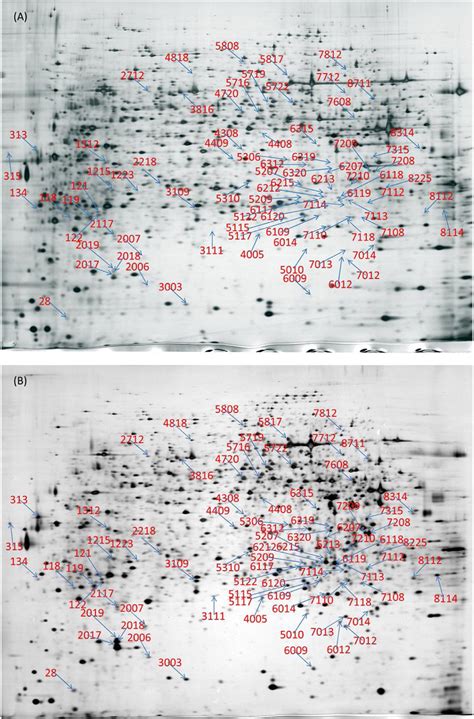 (A)
5808
4818 5719 5817 7812
2712 5716 5721 7712 8711
4720
3816 7608
4308 6315 8314
313 4409 4408 7209 7315
1312 5306 6312 6319 6207 7208
1215 2218 5207 6320 7210 6118 8225
315 121 1223 6215 6213
134 118 119 3109 6212 6119 7112 8112
5310 5209 7114
2117 6117 7113
5122 6120
122 2007 5115 6109 7110 7118 7108 8114
2019 5117 6014
2018 3111 4005 7014
2017 2006 5010 7013 7012
6009 6012
28 3003
(B)
5808
4818 5719 5817 7812
2712 5716 5721 7712 8711
4720
3816 7608
4308 6315 8314
313 4409 4408 7209 7315
1312 5306 6312 6319 6207 7208
1215 2218 5207 6320 7210 6118 8225
315 121 1223 5209 6213
134 118 119 3109 6212 6215 6119 7112 8112
5310 6117 7114 7113
2117 5122 6120
122 2007 5115 6109 7110 7118 7108 8114
2019 5117 6014
2018 3111 4005 7014
2017 2006 5010 7013 7012
6009 6012
28 3003